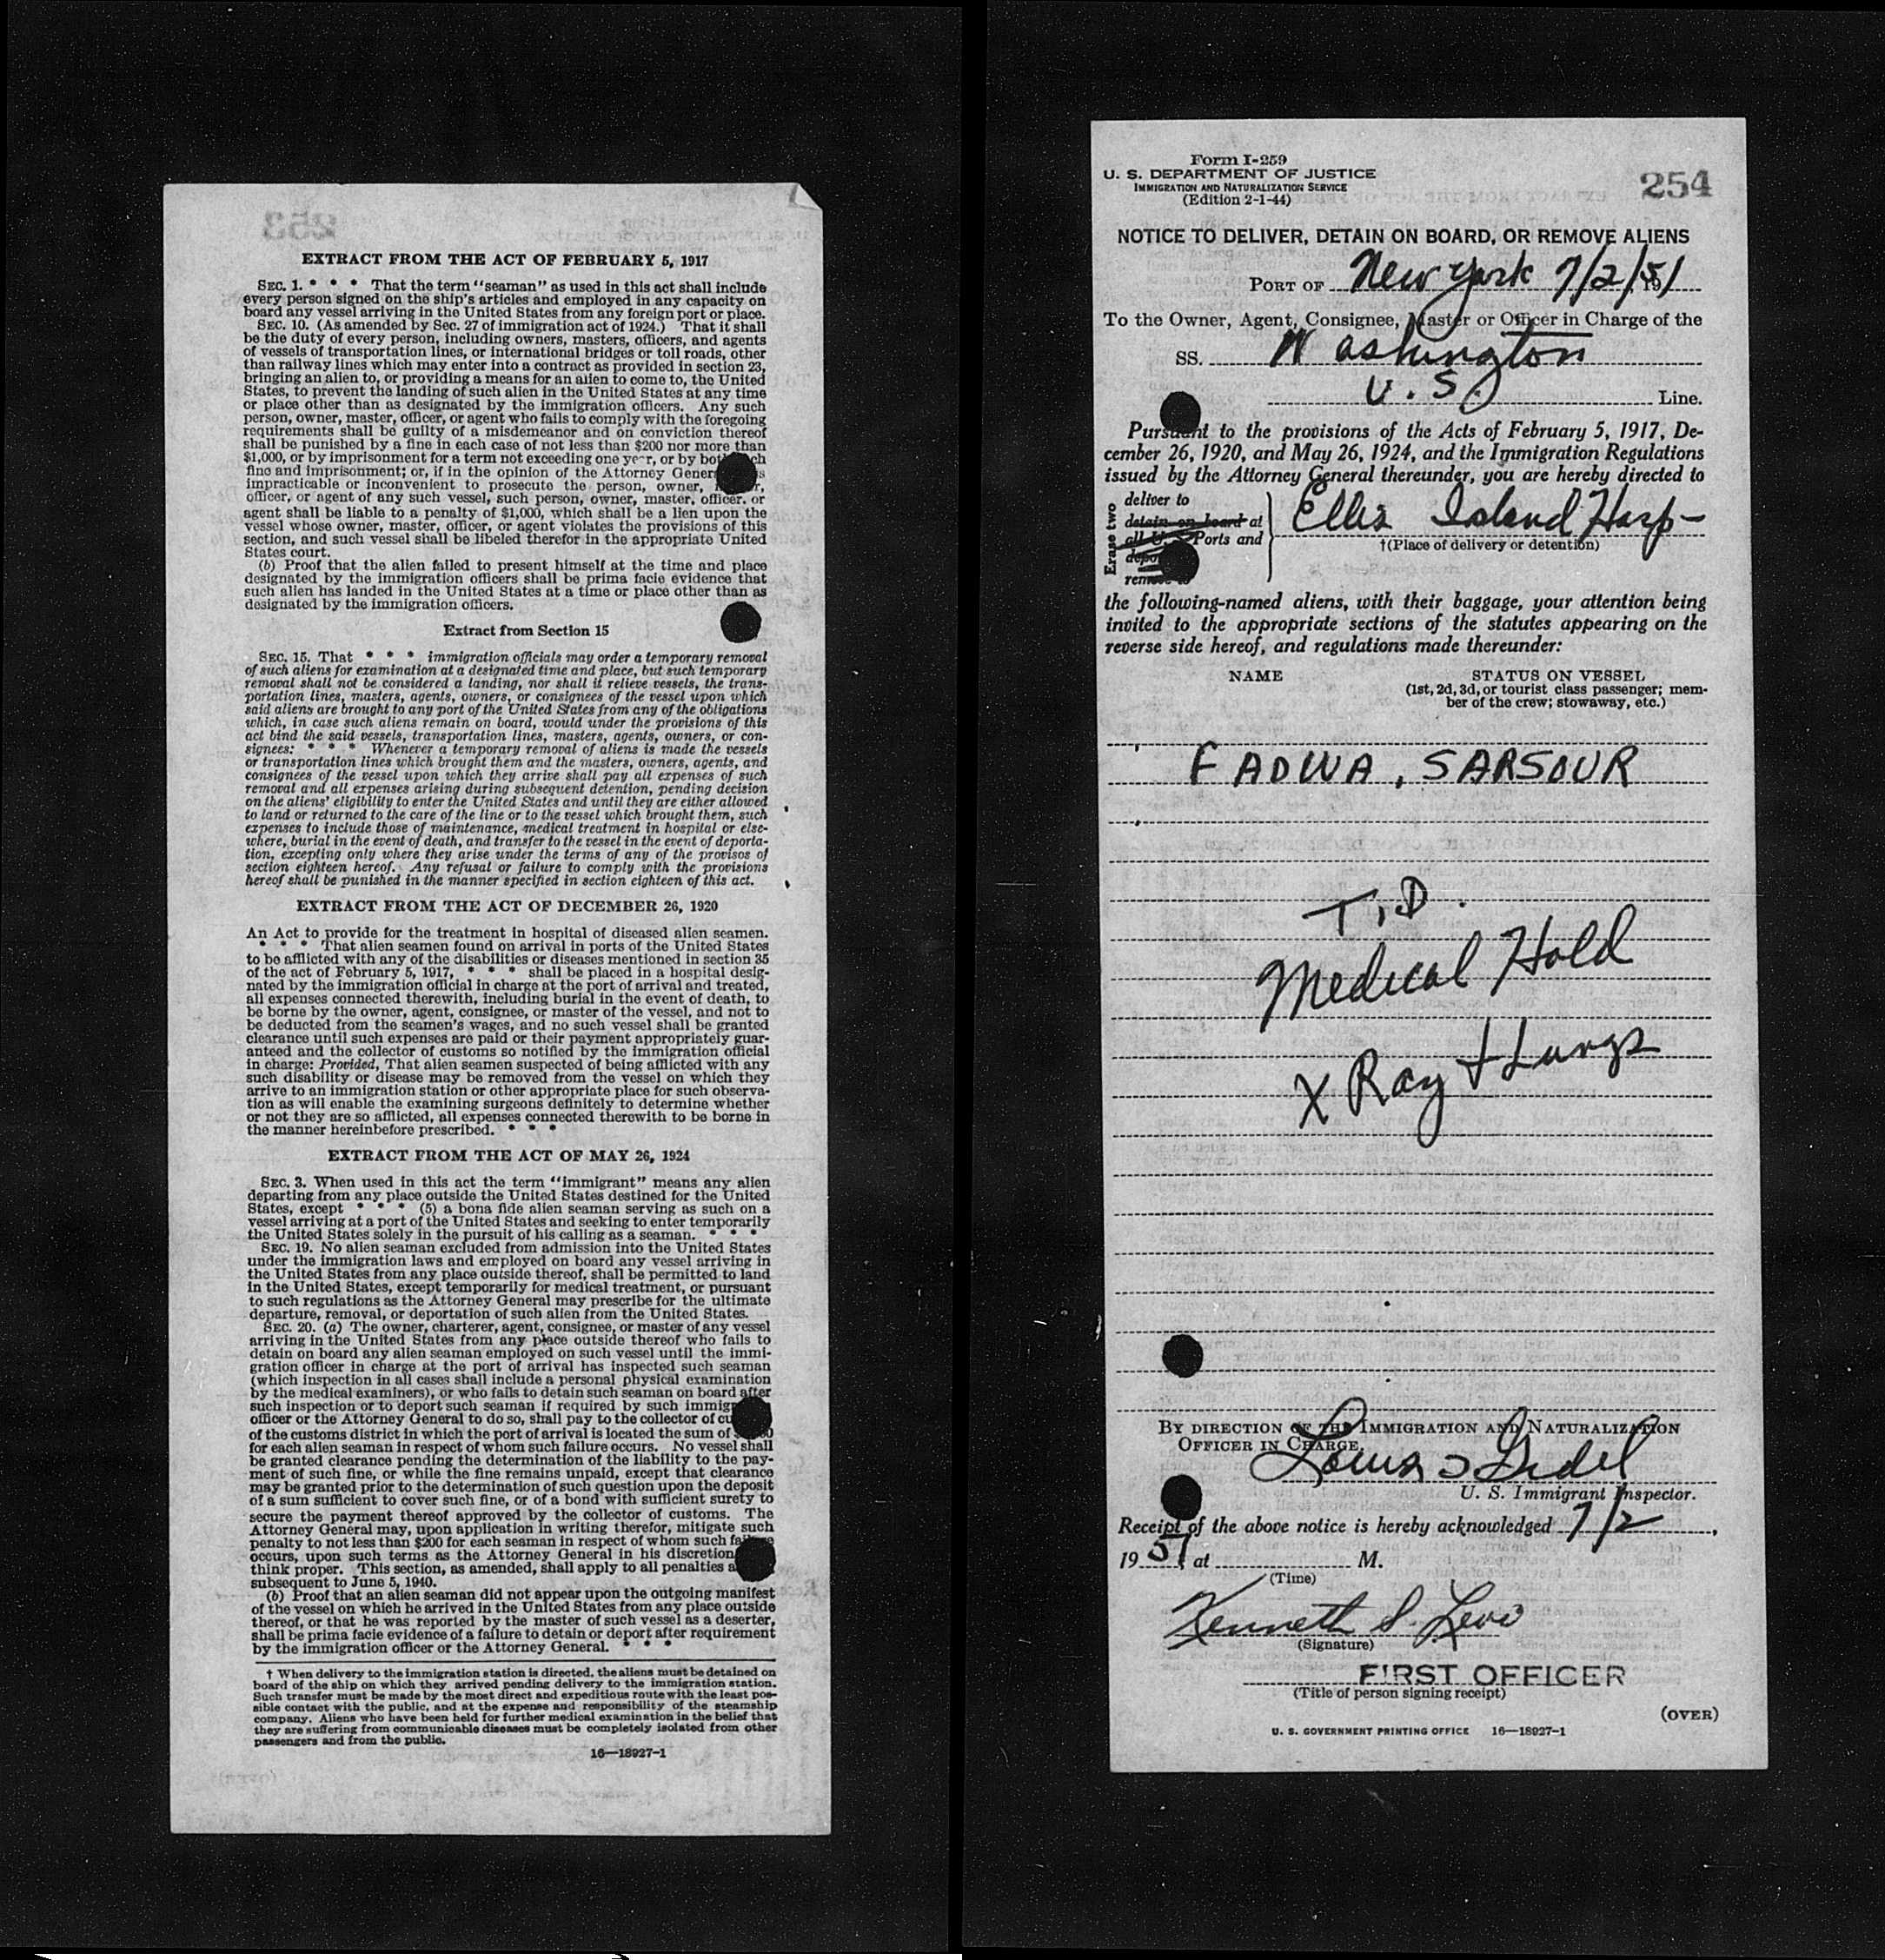 253
EXTRACT FROM THE ACT OF FEBRUARY 5, 1917
SEC. 1. * * * That the term "seaman" as used in this act shall include
every person signed on the ship's articles and employed in any capacity on
board any vessel arriving in the United States from any foreign port or place.
SEC. 10. (As amended by Sec. 27 of immigration act of 1924.) That it shall
be the duty of every person, including owners, masters, officers, and agents
of vessels of transportation lines, or international bridges or toll roads, other
than railway lines which may enter into a contract as provided in section 23,
bringing an alien to, or providing a means for an alien to come to, the United
States, to prevent the landing of such alien in the United States at any time
or place other than as designated by the immigration officers. Any such
person, owner, master, officer, or agent who fails to comply with the foregoing
requirements shall be guilty of a misdemeanor and on conviction thereof
shall be punished by a fine in each case of not less than $200 nor more than
$1,000, or by imprisonment for a term not exceeding one year, or by both such
fine and imprisonment; or, if in the opinion of the Attorney General
impracticable or inconvenient to prosecute the person, owner,
officer, or agent of any such vessel, such person, owner, master, officer, or
agent shall be liable to a penalty of $1,000, which shall be a lien upon the
vessel whose owner, master, officer, or agent violates the provisions of this
section, and such vessel shall be libeled therefor in the appropriate United
States court.
(b) Proof that the alien failed to present himself at the time and place
designated by the immigration officers shall be prima facie evidence that
such alien has landed in the United States at a time or place other than as
designated by the immigration officers.
Extract from Section 15
SEC. 15. That * * * immigration officials may order a temporary removal
of such aliens for examination at a designated time and place, but such temporary
removal shall not be considered a landing, nor shall it relieve vessels, the trans-
portation lines, masters, agents, owners, or consignees of the vessel upon which
said aliens are brought to any port of the United States from any of the obligations
which, in case such aliens remain on board, would under the provisions of this
act bind the said vessels, transportation lines, masters, agents, owners, or con-
signees: * * * Whenever a temporary removal of aliens is made the vessels
or transportation lines which brought them and the masters, owners, agents, and
consignees of the vessel upon which they arrive shall pay all expenses of such
removal and all expenses arising during subsequent detention, pending decision
on the aliens' eligibility to enter the United States and until they are either allowed
to land or returned to the care of the line or to the vessel which brought them, such
expenses to include those of maintenance, medical treatment in hospital or else-
where, burial in the event of death, and transfer to the vessel in the event of deporta-
tion, excepting only where they arise under the terms of any of the provisos of
section eighteen hereof. Any refusal or failure to comply with the provisions
hereof shall be punished in the manner specified in section eighteen of this act.
EXTRACT FROM THE ACT OF DECEMBER 26, 1920
An Act to provide for the treatment in hospital of diseased alien seamen.
* * * That alien seamen found on arrival in ports of the United States
to be afflicted with any of the disabilities or diseases mentioned in section 35
of the act of February 5, 1917, * * * shall be placed in a hospital desig-
nated by the immigration official in charge at the port of arrival and treated,
all expenses connected therewith, including burial in the event of death, to
be borne by the owner, agent, consignee, or master of the vessel, and not to
be deducted from the seamen's wages, and no such vessel shall be granted
clearance until such expenses are paid or their payment appropriately guar-
anteed and the collector of customs so notified by the immigration official
in charge: Provided, That alien seamen suspected of being afflicted with any
such disability or disease may be removed from the vessel on which they
arrive to an immigration station or other appropriate place for such observa-
tion as will enable the examining surgeons definitely to determine whether
or not they are so afflicted, all expenses connected therewith to be borne in
the manner hereinbefore prescribed. * * *
EXTRACT FROM THE ACT OF MAY 26, 1924
SEC. 3. When used in this act the term "immigrant" means any alien
departing from any place outside the United States destined for the United
States, except * * * (5) a bona fide alien seaman serving as such on a
vessel arriving at a port of the United States and seeking to enter temporarily
the United States solely in the pursuit of his calling as a seaman. * * *
SEC. 19. No alien seaman excluded from admission into the United States
under the immigration laws and employed on board any vessel arriving in
the United States from any place outside thereof, shall be permitted to land
in the United States, except temporarily for medical treatment, or pursuant
to such regulations as the Attorney General may prescribe for the ultimate
departure, removal, or deportation of such alien from the United States.
SEC. 20. (a) The owner, charterer, agent, consignee, or master of any vessel
arriving in the United States from any place outside thereof who fails to
detain on board any alien seaman employed on such vessel until the immi-
gration officer in charge at the port of arrival has inspected such seaman
(which inspection in all cases shall include a personal physical examination
by the medical examiners), or who fails to detain such seaman on board after
such inspection or to deport such seaman if required by such
officer or the Attorney General to do so, shall pay to the collector of
of the customs district in which the port of arrival is located the sum of
for each alien seaman in respect of whom such failure occurs. No vessel shall
be granted clearance pending the determination of the liability to the pay-
ment of such fine, or while the fine remains unpaid, except that clearance
may be granted prior to the determination of such question upon the deposit
of a sum sufficient to cover such fine, or of a bond with sufficient surety to
secure the payment thereof approved by the collector of customs. The
Attorney General may, upon application in writing therefor, mitigate such
penalty to not less than $200 for each seaman in respect of whom such failure
occurs, upon such terms as the Attorney General in his discretion
think proper. This section, as amended, shall apply to all penalties
subsequent to June 5, 1940.
(b) Proof that an alien seaman did not appear upon the outgoing manifest
of the vessel on which he arrived in the United States from any place outside
thereof, or that he was reported by the master of such vessel as a deserter,
shall be prima facie evidence of a failure to detain or deport after requirement
by the immigration officer or the Attorney General. * * *
† When delivery to the immigration station is directed, the aliens must be detained on
board of the ship on which they arrived pending delivery to the immigration station.
Such transfer must be made by the most direct and expeditious route with the least pos-
sible contact with the public, and at the expense and responsibility of the steamship
company. Aliens who have been held for further medical examination in the belief that
they are suffering from communicable diseases must be completely isolated from other
passengers and from the public.
16—18927-1
Form I-259
U. S. DEPARTMENT OF JUSTICE
IMMIGRATION AND NATURALIZATION SERVICE
(Edition 2-1-44)
254
NOTICE TO DELIVER, DETAIN ON BOARD, OR REMOVE ALIENS
PORT OF New York 7/2/51
To the Owner, Agent, Consignee, Master or Officer in Charge of the
SS. Washington
U.S. Line.
Pursuant to the provisions of the Acts of February 5, 1917, De-
cember 26, 1920, and May 26, 1924, and the Immigration Regulations
issued by the Attorney General thereunder, you are hereby directed to
Erase two
deliver to
detain on board at
all U. S. Ports and
remove to
Ellis Island Hosp-
†(Place of delivery or detention)
the following-named aliens, with their baggage, your attention being
invited to the appropriate sections of the statutes appearing on the
reverse side hereof, and regulations made thereunder:
NAME
STATUS ON VESSEL
(1st, 2d, 3d, or tourist class passenger; mem-
ber of the crew; stowaway, etc.)
FADWA, SARSOUR
T.D.
Medical Hold
X Ray + Lungs
BY DIRECTION OF THE IMMIGRATION AND NATURALIZATION
OFFICER IN CHARGE
Louis
U. S. Immigrant Inspector.
Receipt of the above notice is hereby acknowledged 7/2,
1951 at M.
(Time)
Kenneth S. Levi
(Signature)
FIRST OFFICER
(Title of person signing receipt)
(OVER)
U. S. GOVERNMENT PRINTING OFFICE 16—18927-1